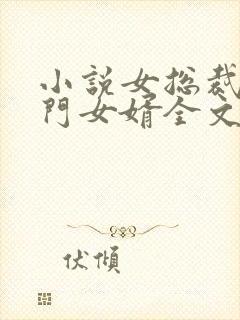 小說女總裁
門女婿全文
伏傾